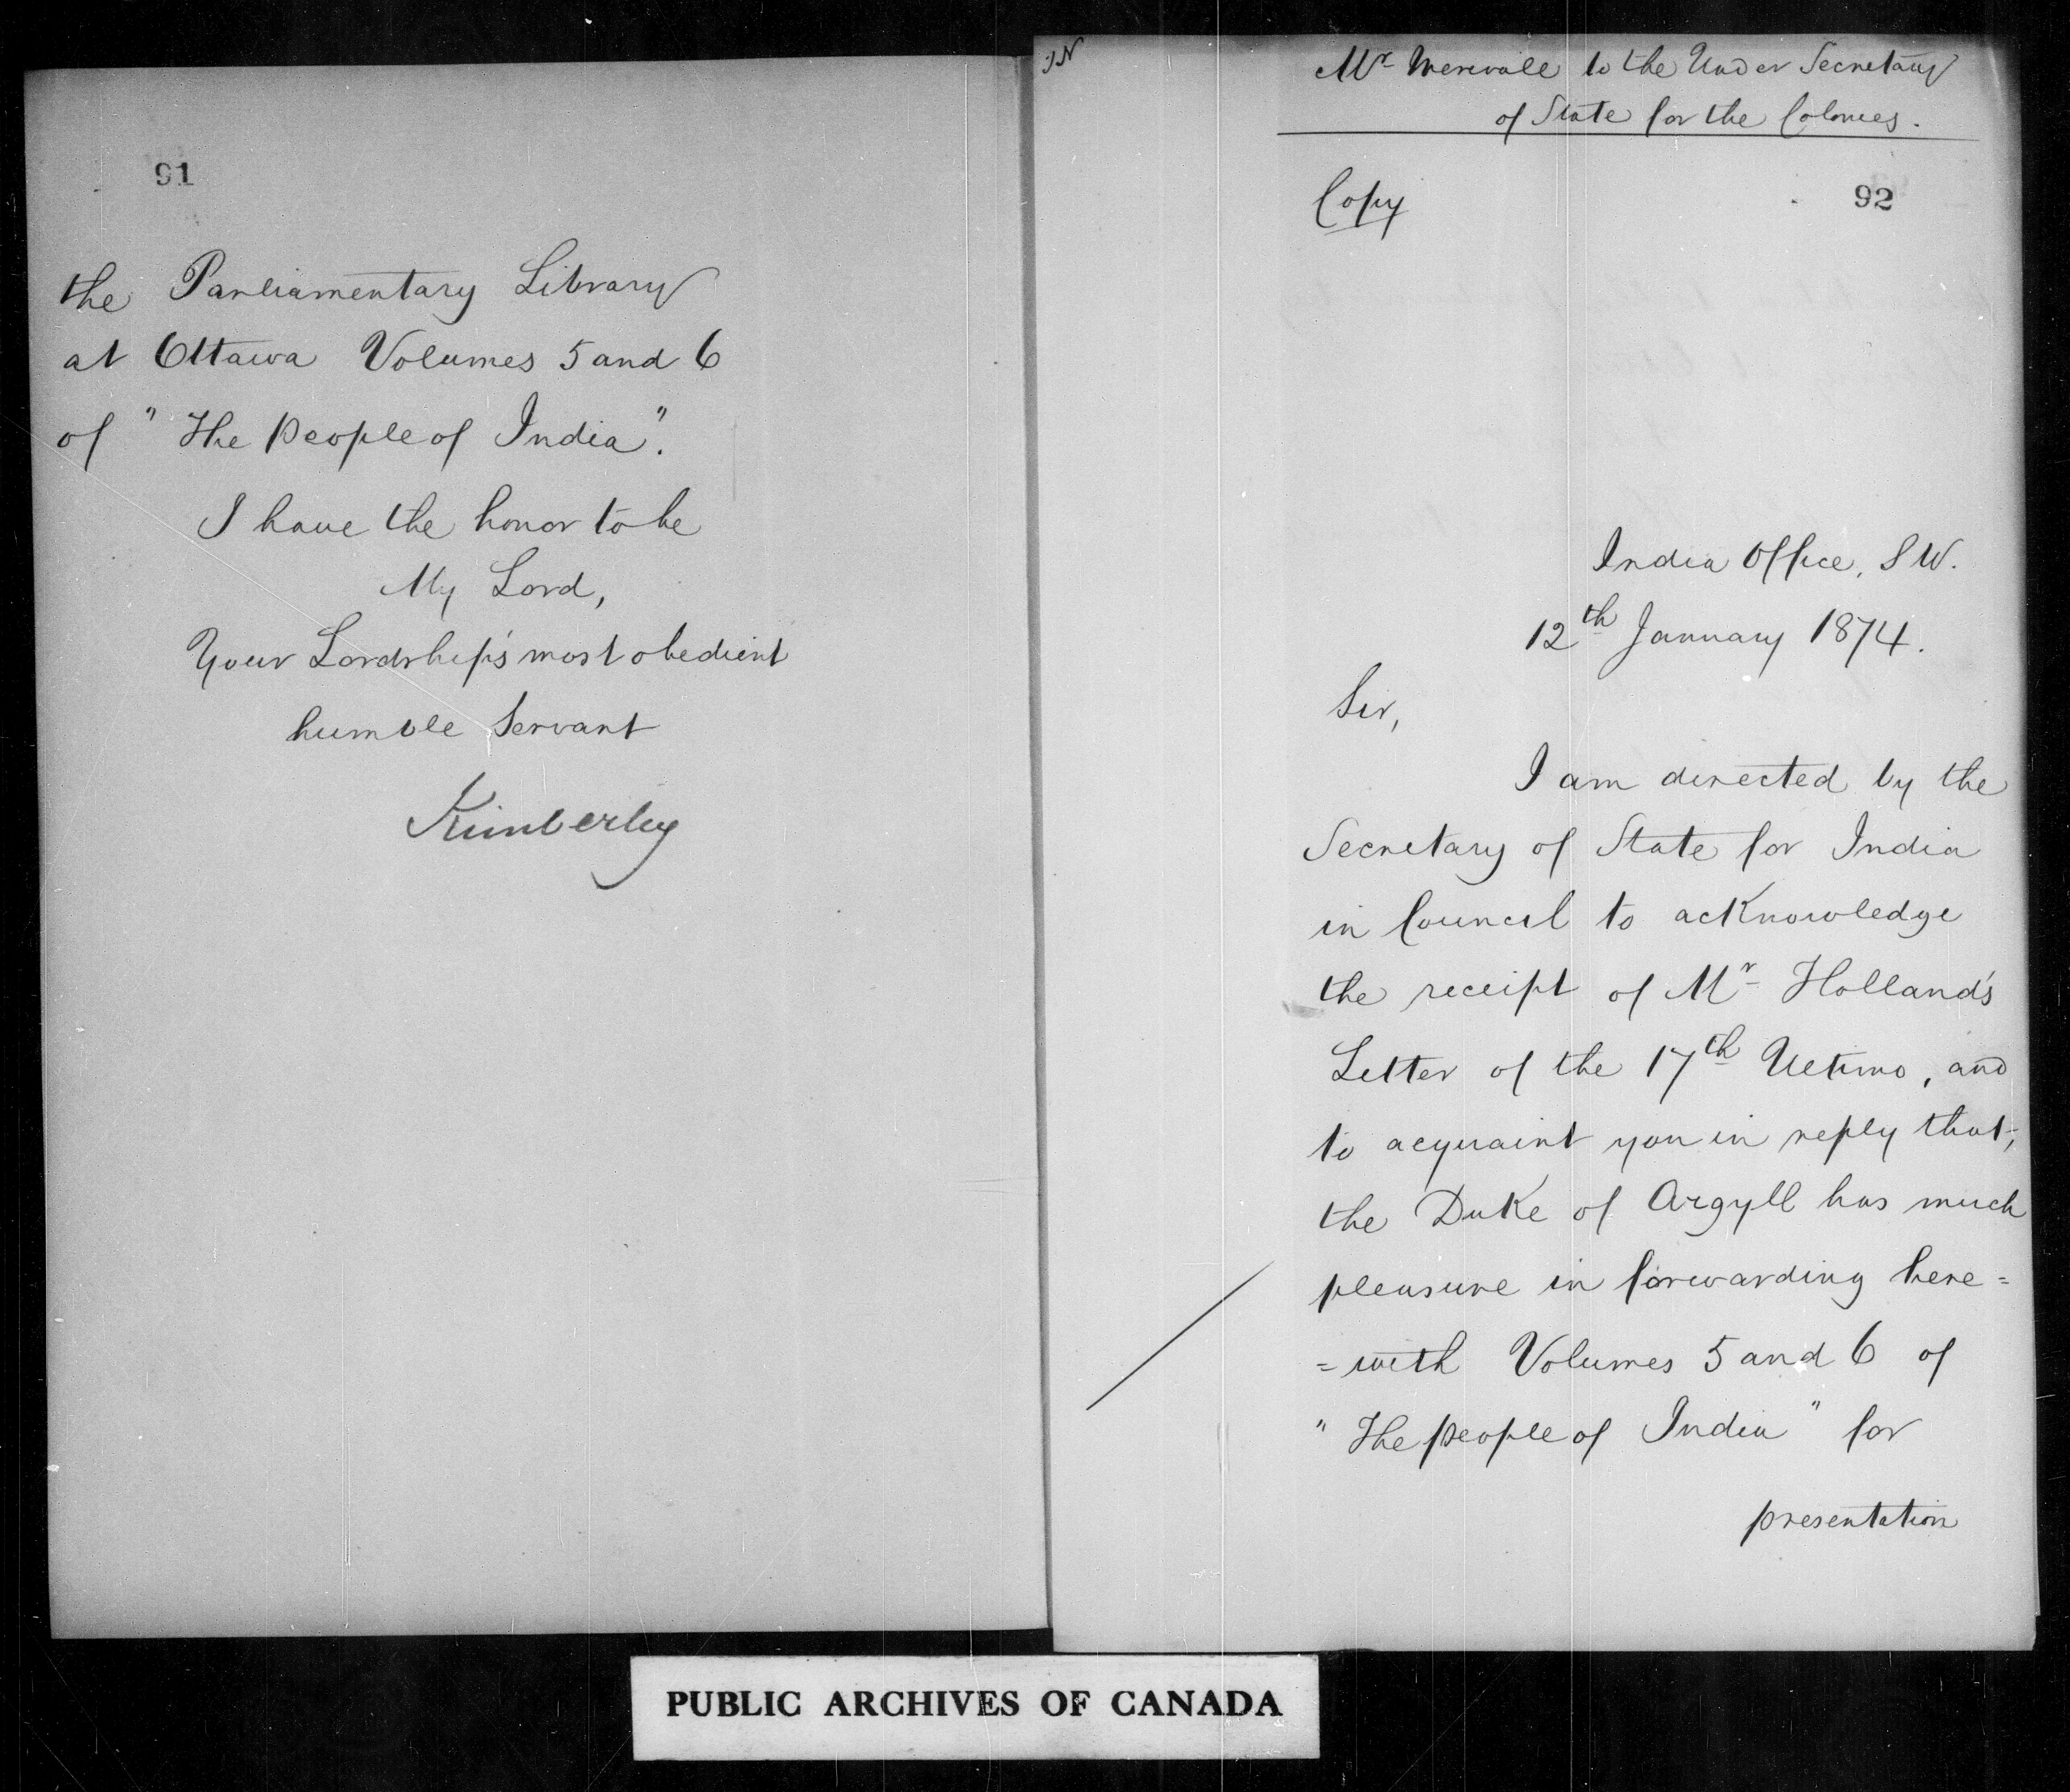 91
the Parliamentary Library
at Ottawa Volumes 5 and 6
of "The People of India".
I have the honor to be
My Lord,
Your Lordship's most obedient
humble Servant
Kimberley
Mr Merivale to the Under Secretary
of State for the Colonies.
Copy
92
India Office, S W.
12th January 1874.
Sir,
I am directed by the
Secretary of State for India
in Council to acknowledge
the receipt of Mr Holland's
Letter of the 17th Ultimo, and
to acquaint you in reply that,
the Duke of Argyll has much
pleasure in forwarding here=
=with Volumes 5 and 6 of
"The people of India" for
presentation
PUBLIC ARCHIVES OF CANADA